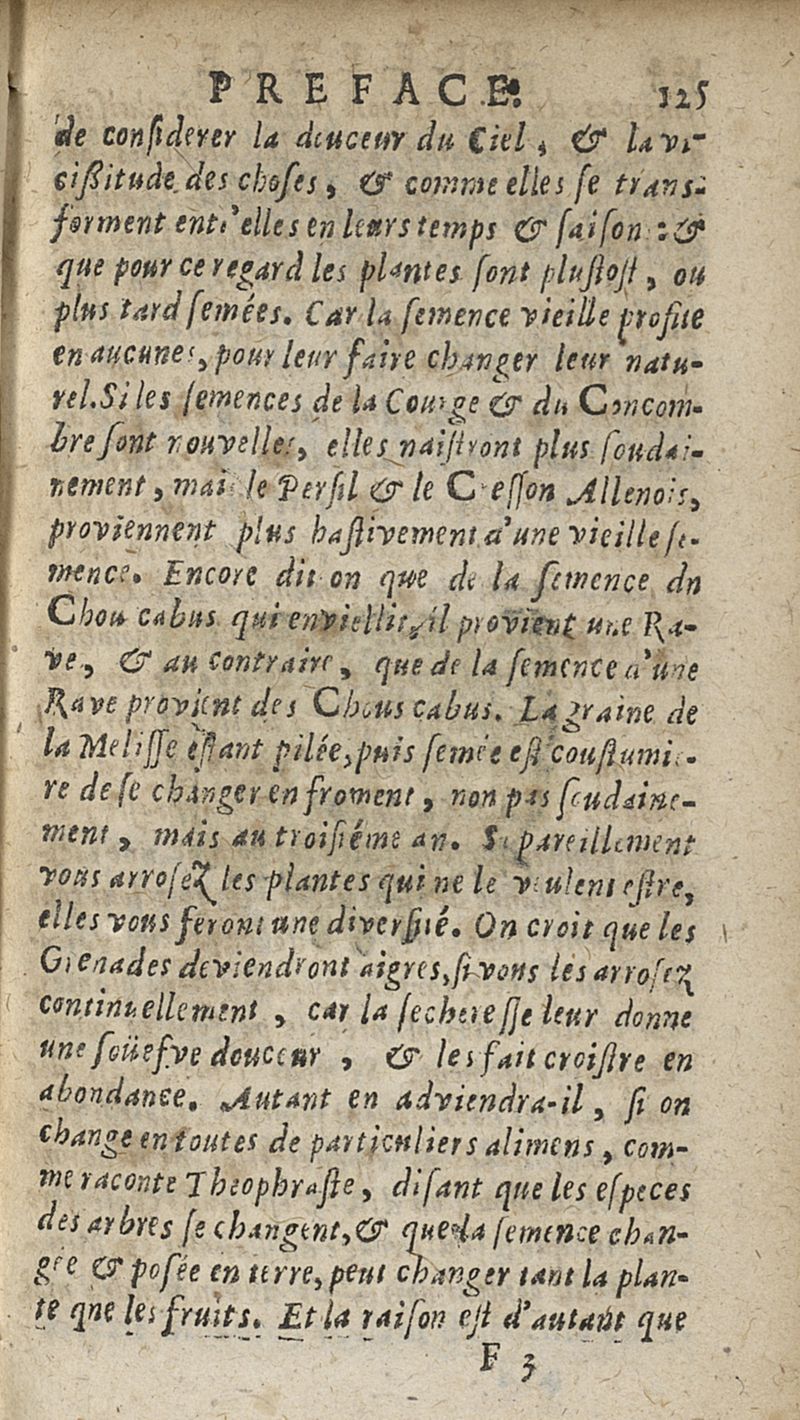 PREFACE. 125
de conſiderer la douceur du Ciel, & la vi-
ciſſitude des choſes, & comme elles ſe tranſ-
forment entr'elles en leurs temps & ſaiſon : &
que pour ce regard les plantes ſont pluſtoſt, ou
plus tard ſemées. Car la ſemence vieille profite
en aucunes, pour leur faire changer leur natu-
rel. Si les ſemences de la Courge & du Concom-
bre ſont nouvelles, elles naiſtront plus ſoudai-
nement, mais le Perſil & le Creſſon Allenois,
proviennent plus haſtivement d'une vieille ſe-
mence. Encore dit on que de la ſemence dn
Chou cabus qui enviellit, il provient une Ra-
ve, & au contraire, que de la ſemence d'une
Rave provient des Chous cabus. La graine de
la Meliſſe eſtant pilée, puis ſemée eſt couſtumie-
re de ſe changer en froment, non pas ſoudaine-
ment, mais au troiſiéme an. Si pareillement
vous arroſez les plantes qui ne le veulent eſtre,
elles vous feront une diverſité. On croit que les
Grenades deviendront aigres, ſi vous les arroſez
continuellement, car la ſechereſſe leur donne
une ſoüefve douceur, & les fait croiſtre en
abondance. Autant en adviendra-il, ſi on
change en toutes de particuliers alimens, com-
me raconte Theophraſte, diſant que les eſpeces
des arbres ſe changent, & que la ſemence chan-
gée & poſée en terre, peut changer tant la plan-
te qne les fruits. Et la raiſon eſt d'autant que
F 3